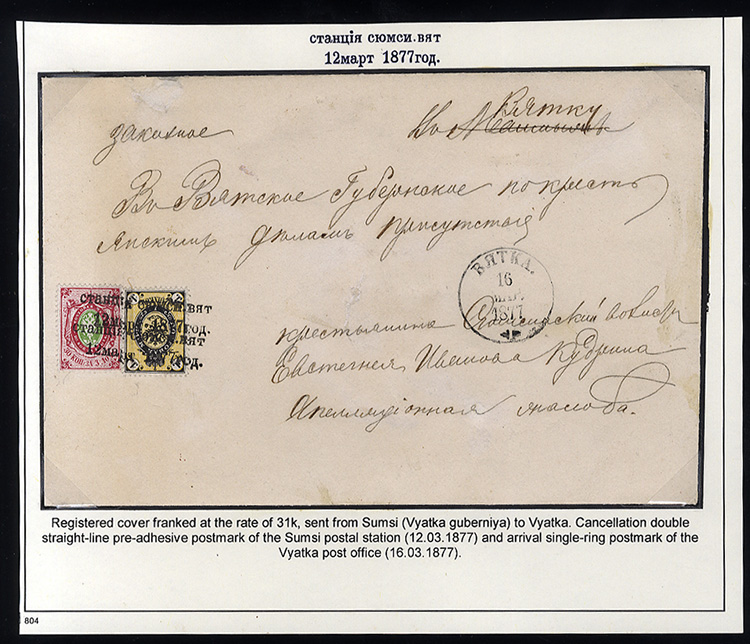 станція сюмси.вят
12март 1877год.
заказное
Въ Вятку
Въ Вятское Губернское по кресть
янскимъ дѣламъ присутствіе
ВЯТКА.
16
МАР.
1877
станція сюмси.вят
12март 1877год.
станція сюмси.вят
12март 1877год.
крестьянина
Евстегнея Иванова Кудрина
Апелляціонная жалоба.
Registered cover franked at the rate of 31k, sent from Sumsi (Vyatka guberniya) to Vyatka. Cancellation double
straight-line pre-adhesive postmark of the Sumsi postal station (12.03.1877) and arrival single-ring postmark of the
Vyatka post office (16.03.1877).
804